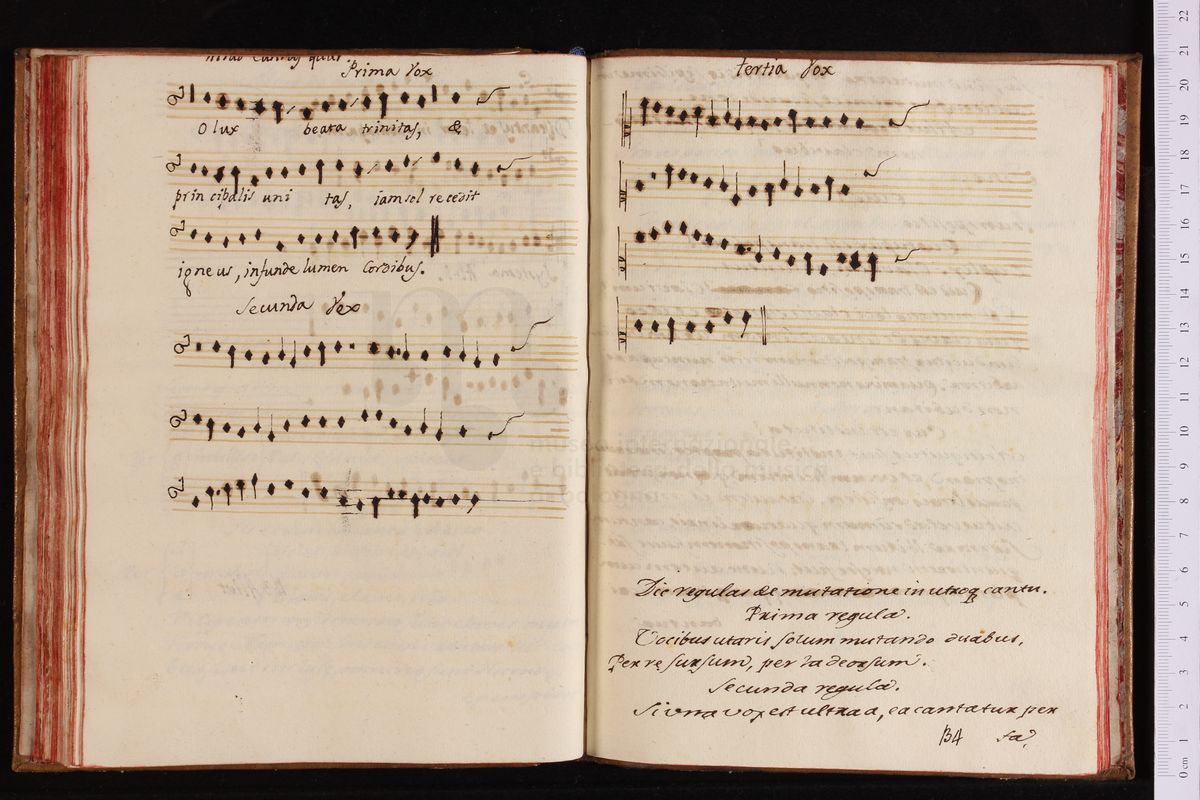 Prima Vox
O lux beata trinitas, &
principalis uni tas, iam sol recedit
igneus, infunde lumen Cordibus.
Secunda Vox
museo internazionale
e biblioteca della musica
Tertia Vox
Dic regulas de mutatione in utroq cantu.
Prima regula.
Vocibus utaris solum mutando duabus,
Per re sursum, per la deorsum.
Secunda regula.
Si vna vox est ultra a, ea cantatur per
B4 fa,
0 cm 1 2 3 4 5 6 7 8 9 10 11 12 13 14 15 16 17 18 19 20 21 22